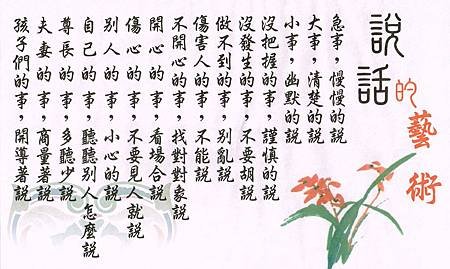 說話
的藝術
急事，慢慢的說
大事，清楚的說
小事，幽默的說
沒把握的事，謹慎的說
沒發生的事，不要胡說
做不到的事，別亂說
傷害人的事，不能說
不開心的事，找對對象說
開心的事，看場合說
傷心的事，不要見人就說
別人的事，小心的說
自己的事，聽聽別人怎麼說
尊長的事，多聽少說
夫妻的事，商量著說
孩子們的事，開導著說